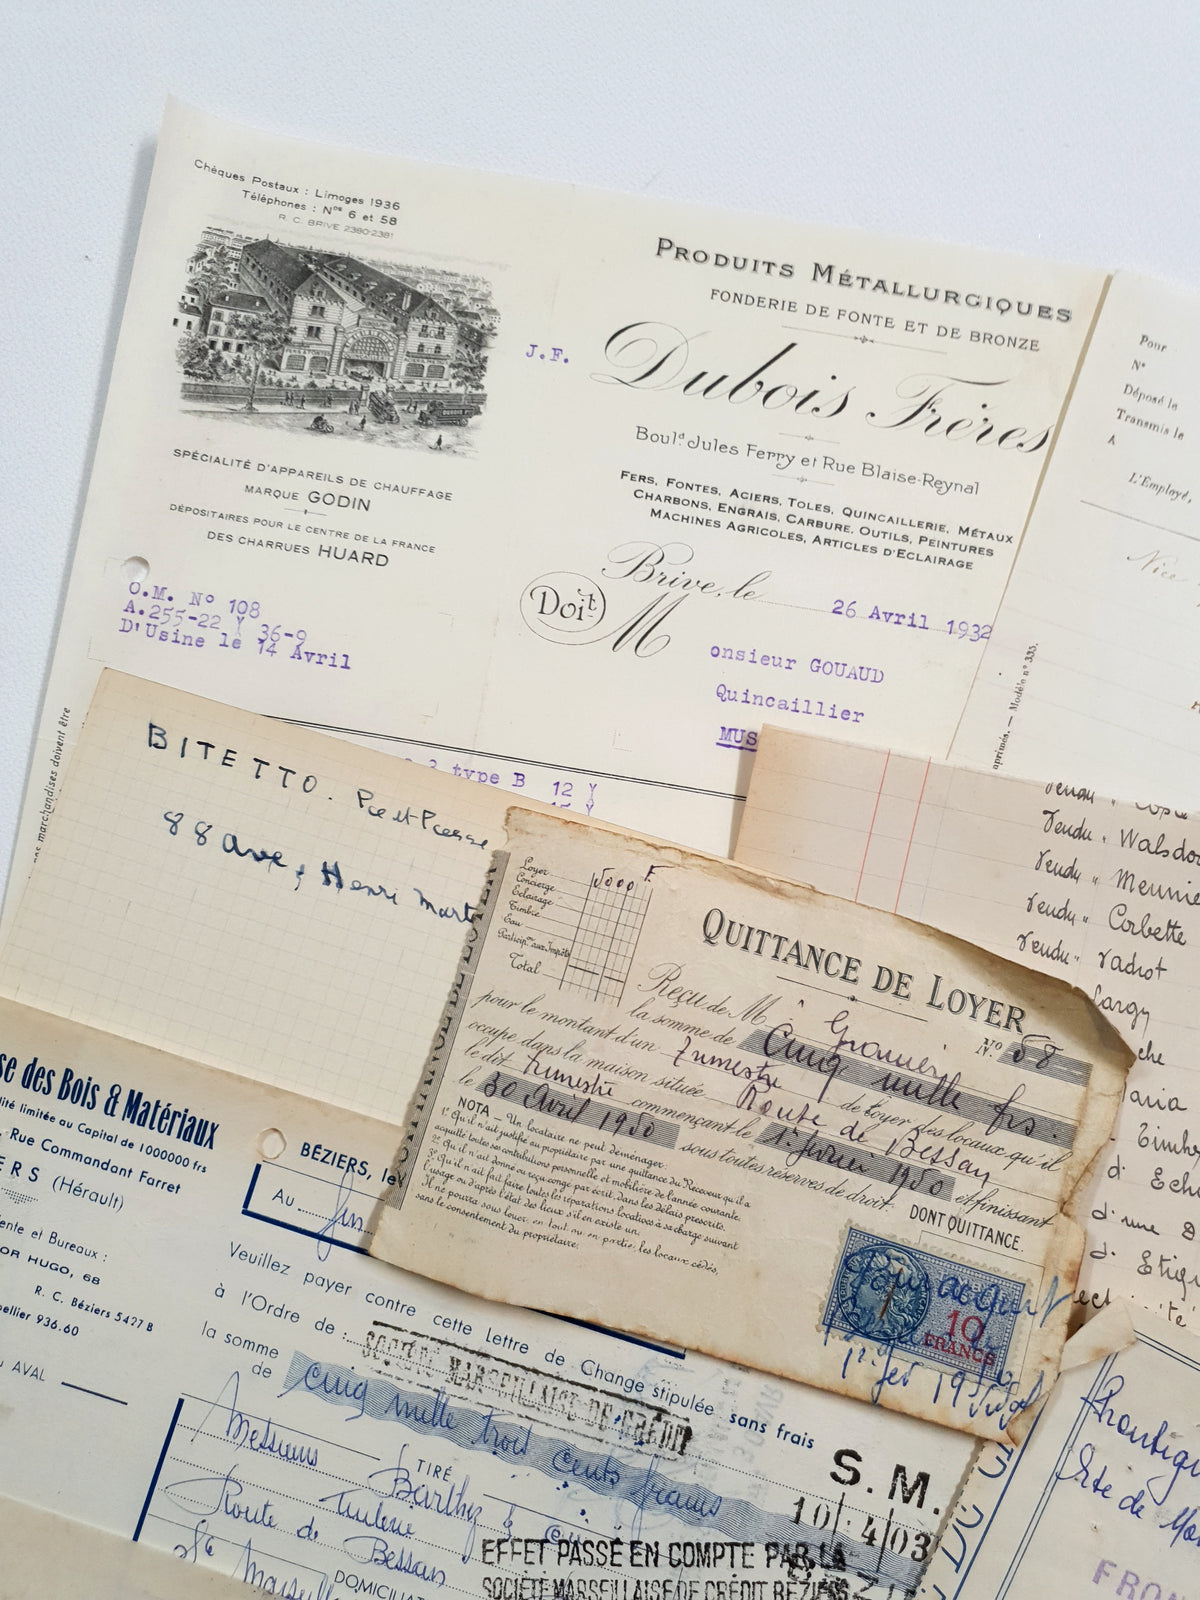 Chèques Postaux : Limoges 1936
Téléphones : Nos 6 et 58
R. C. BRIVE 2380-2381
DUBOIS
SPÉCIALITÉ D'APPAREILS DE CHAUFFAGE
MARQUE GODIN
DÉPOSITAIRES POUR LE CENTRE DE LA FRANCE
DES CHARRUES HUARD
O.M. N° 108
A.255-22 Y 36-9
D'Usine le 14 Avril
J.F.
PRODUITS MÉTALLURGIQUES
FONDERIE DE FONTE ET DE BRONZE
Dubois Frères
Boul.d Jules Ferry et Rue Blaise-Reynal
FERS, FONTES, ACIERS, TOLES, QUINCAILLERIE, MÉTAUX
CHARBONS, ENGRAIS, CARBURE, OUTILS, PEINTURES
MACHINES AGRICOLES, ARTICLES D'ECLAIRAGE
Brive, le 26 Avril 1932
Doit M
onsieur GOUAUD
Quincaillier
MUS
3 type B 12 Y
Pour
N°
Déposé le
Transmis le
A
L'Employé,
Nice
aprimés. — Modèle n° 335.
marchandises doivent être
BITETTO.
88 ave, Henri Mart
Vendu "
Vendu " Walsdo
Vendu " Meunie
Vendu " Corbette
Vendu " Vadrot
Largy
che
aria
Timbre
d' Eche
d'une
d' Etiq
QUITTANCE DE LOYER
Loyer 5000 F.
Concierge
Eclairage
Timbre
Eau
Particip.on aux Impôts
Total
N° 58
Reçu de M
la somme de Cinq mille frs.
pour le montant d'un Trimestre de loyer des locaux qu'il
occupe dans la maison située Route de Bessan
le dit Trimestre commençant le 1er février 1950 et finissant
le 30 Avril 1950 sous toutes réserves de droit.
DONT QUITTANCE.
NOTA — Un locataire ne peut déménager:
1° Qu'il n'ait justifié au propriétaire par une quittance du Receveur qu'il a
acquitté toutes ses contributions personnelle et mobilière de l'année courante.
2° Qu'il n'ait donné ou reçu congé par écrit dans les délais prescrits.
3° Qu'il n'ait fait faire toutes les réparations locatives à sa charge suivant
l'usage ou d'après l'état des lieux s'il en existe un.
Il ne pourra sous louer, en tout ou en partie, les locaux cédés,
sans le consentement du propriétaire.
Pour acquit
10
FRANCS
1er fev 195
se des Bois & Matériaux
lité limitée au Capital de 1000000 frs
Rue Commandant Farret
ERS (Hérault)
ente et Bureaux :
OR HUGO, 68
R. C. Béziers 5427 B
pellier 936.60
AVAL
BÉZIERS, le
Au fin
Veuillez payer contre cette Lettre de Change stipulée sans frais
à l'Ordre de :
SOCIÉTÉ MARSEILLAISE DE CRÉDIT
la somme
de cinq mille trois cents francs
TIRÉ
Messieurs Barthez &
Route de Bessan
Marseill
DOMICILIAT
S. M.
10 4 03
EFFET PASSÉ EN COMPTE PAR LA
SOCIÉTÉ MARSEILLAISE DE CRÉDIT BÉZIERS
Frontig
FRON